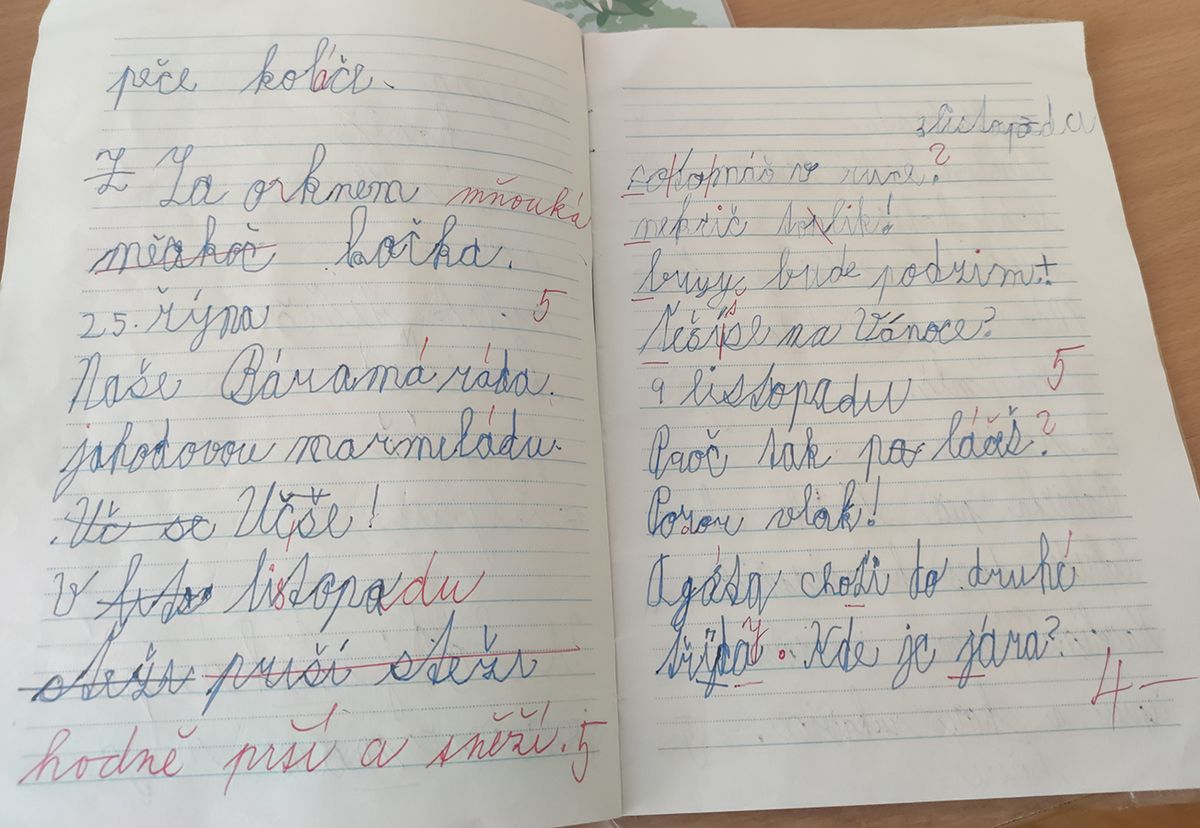 peče koláče.
Z Za orknem mňouká
kočka.
25. října 5
Naše Báramá ráda.
jahodovou marmeládu.
Uč se Učše!
V listopadu
prší
hodně prší a sněží. 5
listopadu
v ruce?
nekřič tolik!
bude podzim
na Vánoce?
9 listopadu 5
Proč tak pa láčeš?
Pozor vlak!
Agáta chodi do druhé
třídy. Kde je jára?
4-